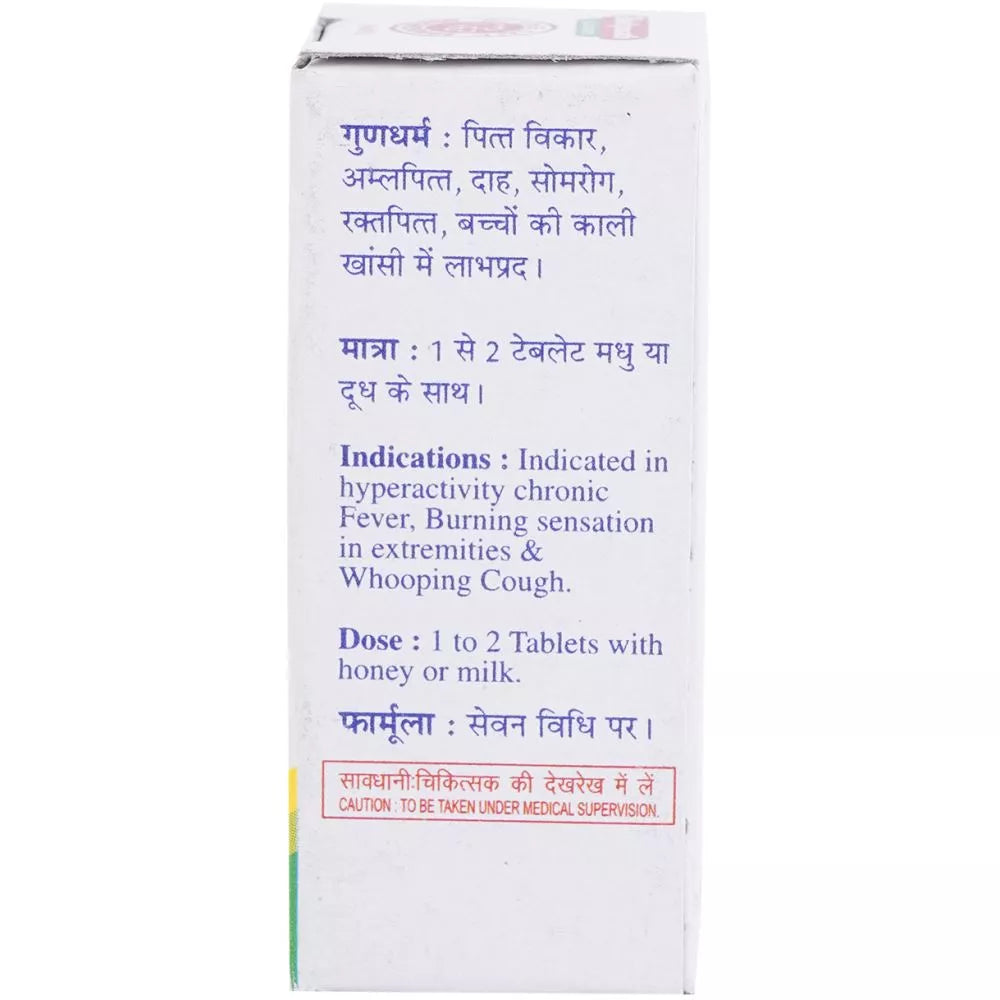 गुणधर्म : पित्त विकार,
अम्लपित्त, दाह, सोमरोग,
रक्तपित्त, बच्चों की काली
खांसी में लाभप्रद।
मात्रा : 1 से 2 टेबलेट मधु या
दूध के साथ।
Indications : Indicated in
hyperactivity chronic
Fever, Burning sensation
in extremities &
Whooping Cough.
Dose : 1 to 2 Tablets with
honey or milk.
फार्मूला : सेवन विधि पर।
सावधानी:चिकित्सक की देखरेख में लें
CAUTION : TO BE TAKEN UNDER MEDICAL SUPERVISION.